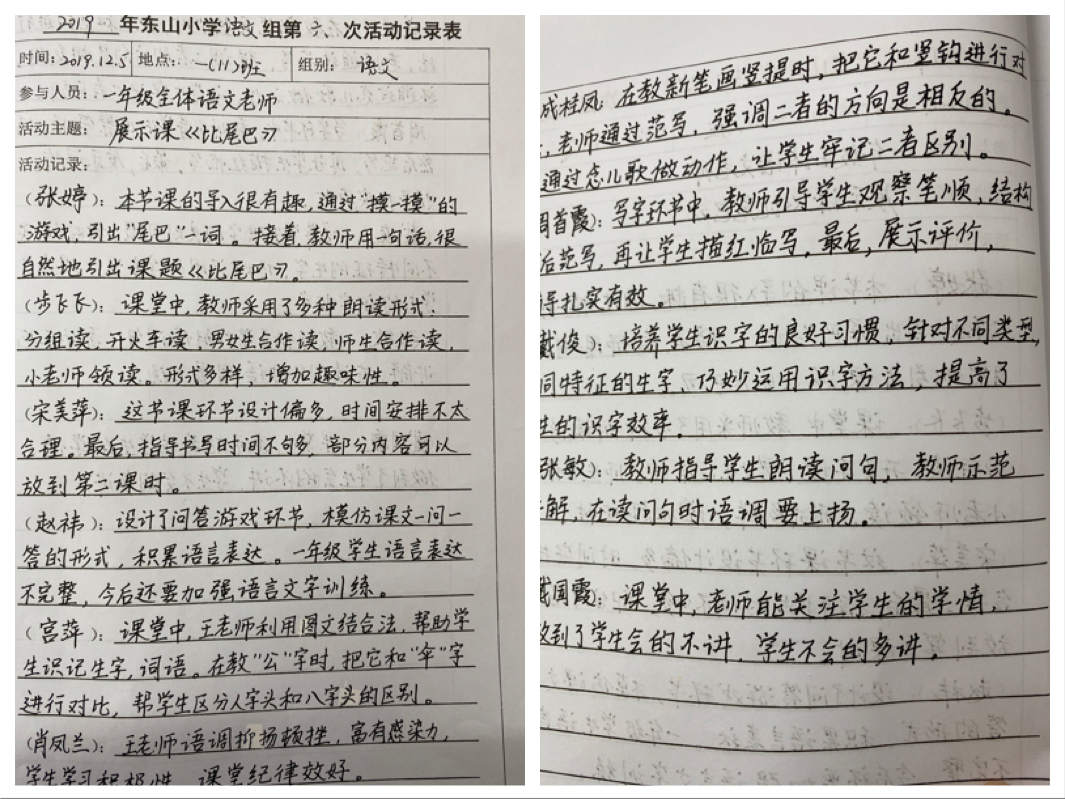 2019 年东山小学语文组第六次活动记录表
时间:2019.12.5 地点: 一(11)班 组别: 语文
参与人员: 一年级全体语文老师
活动主题: 展示课《比尾巴》
活动记录:
(张婷): 本节课的导入很有趣,通过“摸一摸”的
游戏,引出“尾巴”一词。接着,教师用一句话,很
自然地引出课题《比尾巴》。
(步飞飞): 课堂中,教师采用了多种朗读形式:
分组读,开火车读,男女生合作读,师生合作读,
小老师领读。形式多样,增加趣味性。
(宋美萍): 这节课环节设计偏多,时间安排不太
合理。最后,指导书写时间不句多,部分内容可以
放到第二课时。
(赵祎): 设计了问答游戏环节,模仿课文一问一
答的形式,积累语言表达。一年级学生语言表达
不完整,今后还要加强语言文字训练。
(宫萍): 课堂中,王老师利用图文结合法,帮助学
生识记生字,词语。在教“公”字时,把它和“伞”字
进行对比,帮学生区分人字头和八字头的区别。
(肖凤兰): 王老师语调抑扬顿挫,富有感染力,
学生学习积极性,课堂纪律效好。
成桂凤: 在教新笔画竖提时,把它和竖钩进行对
,老师通过范写,强调二者的方向是相反的。
通过念儿歌做动作,让学生牢记二者区别。
周首霞): 写字环节中,教师引导学生观察笔顺,结构
后范写,再让学生描红,临写,最后,展示评价,
导扎实有效。
戴俊): 培养学生识字的良好习惯,针对不同类型,
同特征的生字,巧妙运用识字方法,提高了
生的识字效率。
张敏): 教师指导学生朗读问句,教师示范
解,在读问句时语调要上扬。
国霞): 课堂中,老师能关注学生的学情,
到了学生会的不讲,学生不会的多讲。